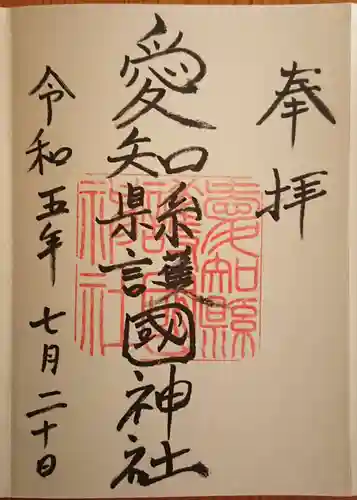 奉拝
愛知縣護國神社
令和五年七月二十日
愛知縣
護國
神社